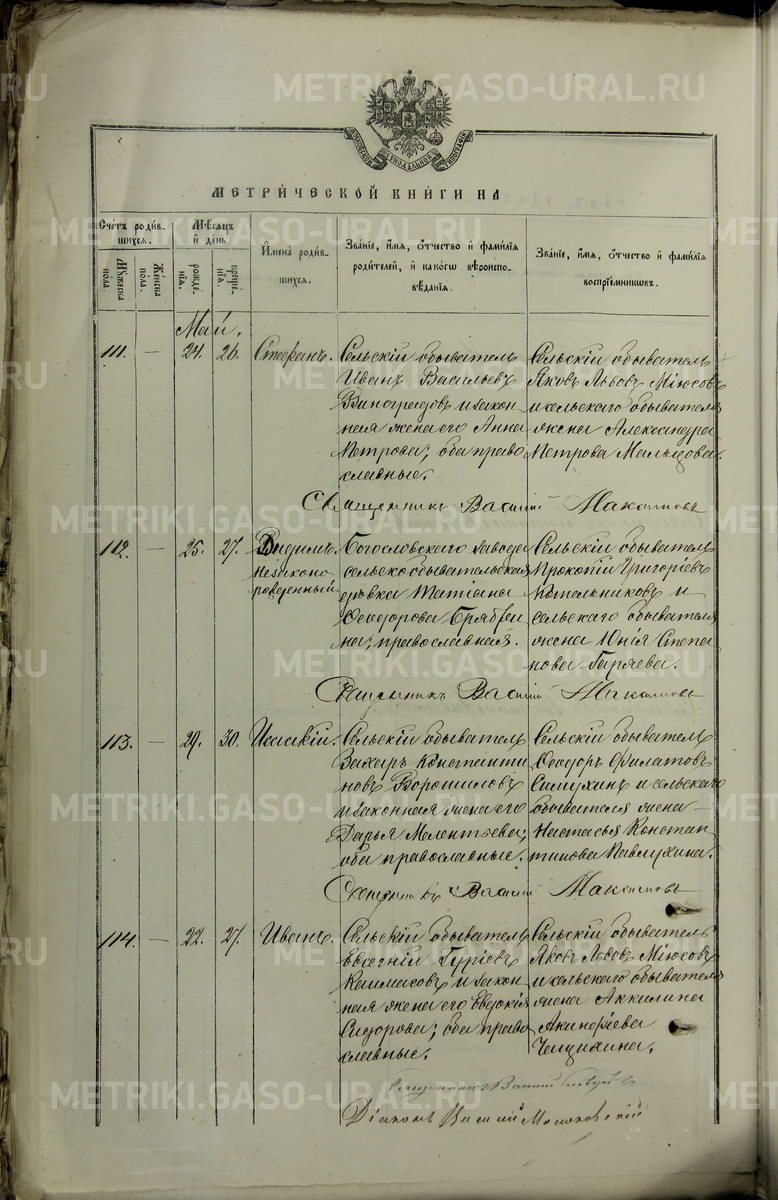 МЕТРИЧЕСКОЙ КНИГИ НА
Счетъ родив-
шихся.
Мужеска
пола.
Женска
пола.
Мѣсяцъ
и день
рожде-
нія.
креще-
нія.
Имена родив-
шихся.
Званіе, имя, отчество и фамилія
родителей, и какого вѣроиспо-
вѣданія.
Званіе, имя, отчество и фамилія
воспріемниковъ.
Май.
111. — 24. 26. Стефанъ.
Сельскій обыватель
Иванъ Васильевъ
Виноградовъ и закон
ная жена его Анна
Петрова; оба право
славные.
Сельскій обыватель
Яковъ Львовъ Міюсовъ
и сельскаго обывателя
жена Александра
Петрова Мальцова.
Священникъ Василій
112. — 25. 27.
незаконо
рожденный.
Богословскаго завода
сельско обывательская
дѣвка Татіана
Ѳеодорова
на; православная.
Сельскій обыватель
Прокопій Григоріевъ
Котельниковъ и
сельскаго обывателя
жена Юнія Степа
нова Гаряева.
Священникъ Василій
113. — 29. 30. Исаакій.
Сельскій обыватель
Захаръ Константи
новъ Ворошиловъ
и законная жена его
Дарья Мелентьева;
оба православные.
Сельскій обыватель
Ѳеодоръ Филатовъ
и сельскаго
обывателя жена —
Настасья Констан
тинова Павлухина.
Священникъ Василій
114. — 22. 27. Иванъ.
Сельскій обыватель
Евгеній Гуріевъ
и закон
ная жена его Евдокія
Сидорова; оба право
славные.
Сельскій обыватель
Яковъ Львовъ Міюсовъ
и сельскаго обывателя
жена Аккилина
Акинфіева
Священникъ Василій
Діаконъ Василій
METRIKI.GASO-URAL.RU